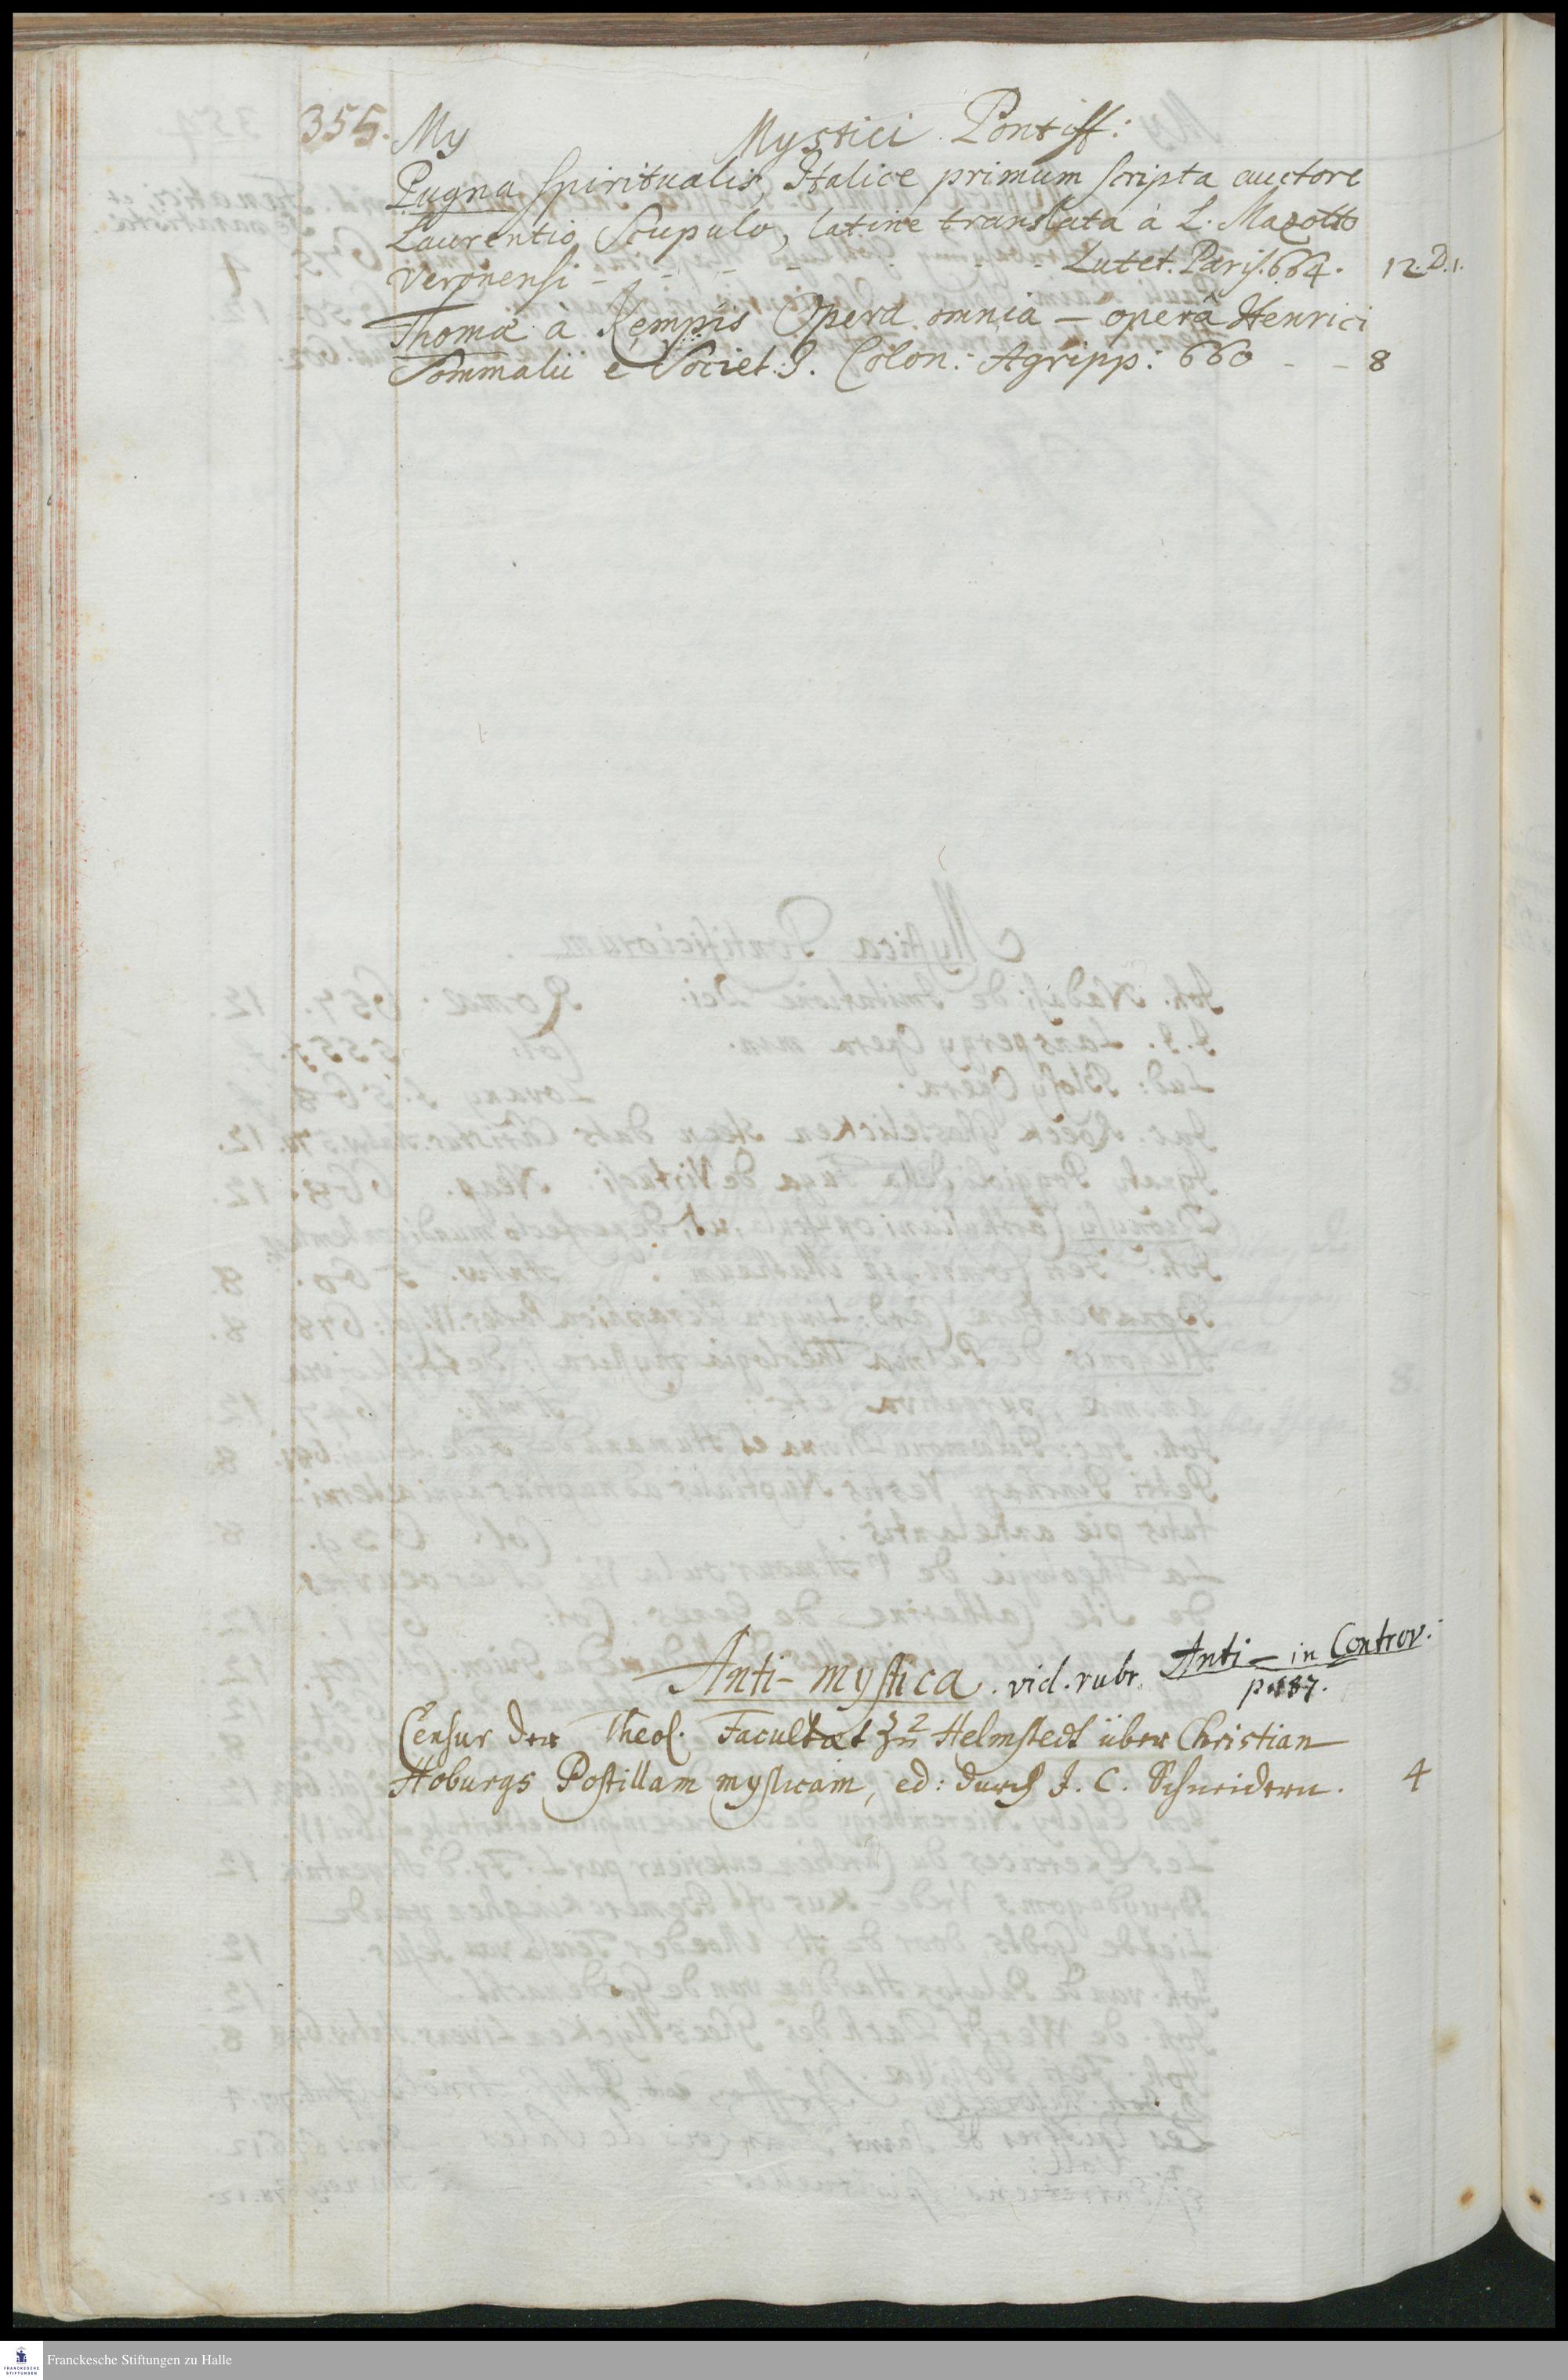 355. My Mystici Pontiff:
Pugna spiritualis, Italice primum scripta auctore
Laurentio Scupulo, latine translata à L. Mazotto
Veronensi - - - - - - Lutet. Paris. 664. 12. D. 1.
Thomæ à Kempis Opera omnia - operâ Henrici
Sommalii e Societ: J. Colon: Agripp: 660 - - 8
Anti-mystica. vid. rubr. Anti - in Controv.
p. 187.
Censur der Theol. Facultæt zu Helmstedt über Christian
Hoburgs Postillam mysticam, ed: durch J. C. Schneidern. 4
Franckesche Stiftungen zu Halle